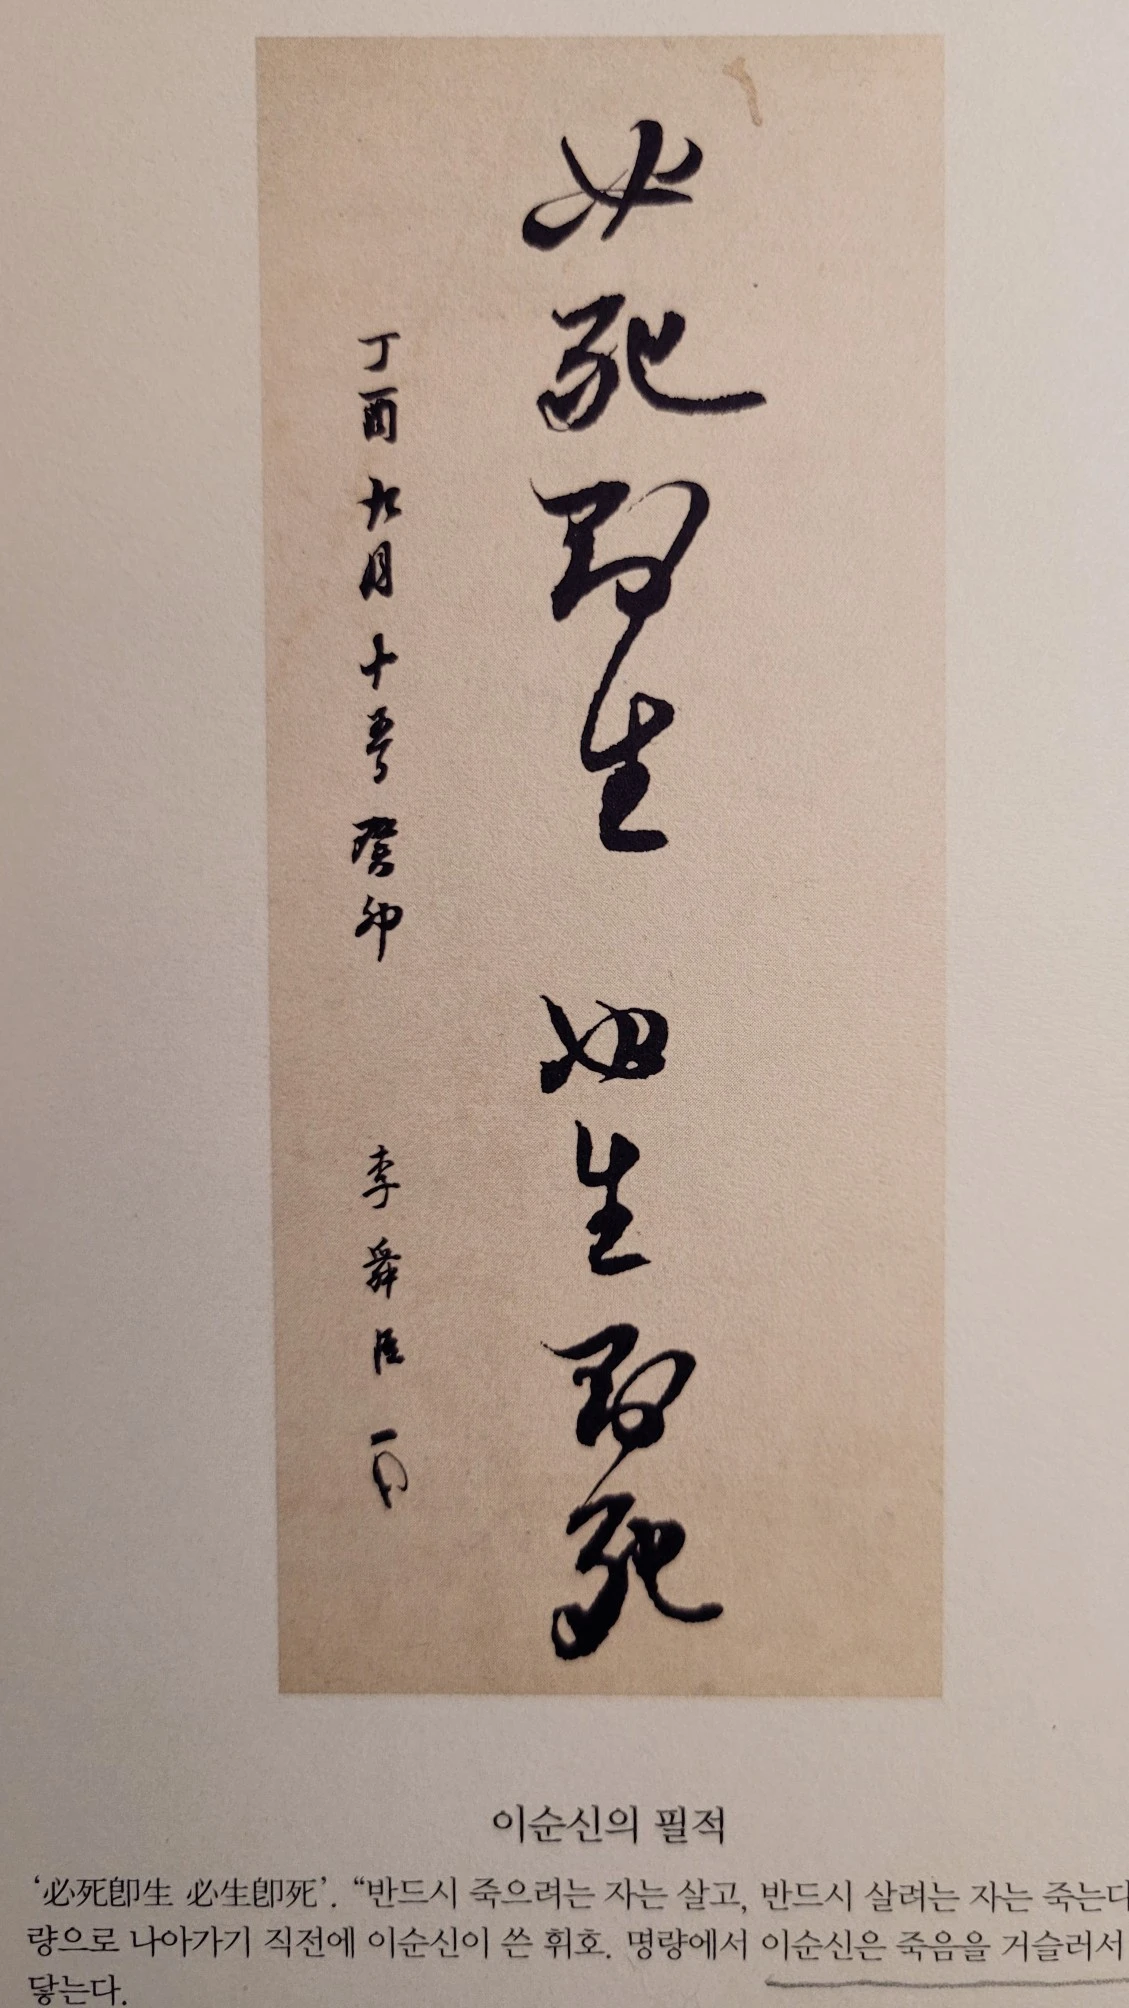 必死卽生 必生卽死
丁酉九月十五 癸卯 李舜臣
이순신의 필적
‘必死卽生 必生卽死’. “반드시 죽으려는 자는 살고, 반드시 살려는 자는 죽는다
량으로 나아가기 직전에 이순신이 쓴 휘호. 명량에서 이순신은 죽음을 거슬러서
닿는다.